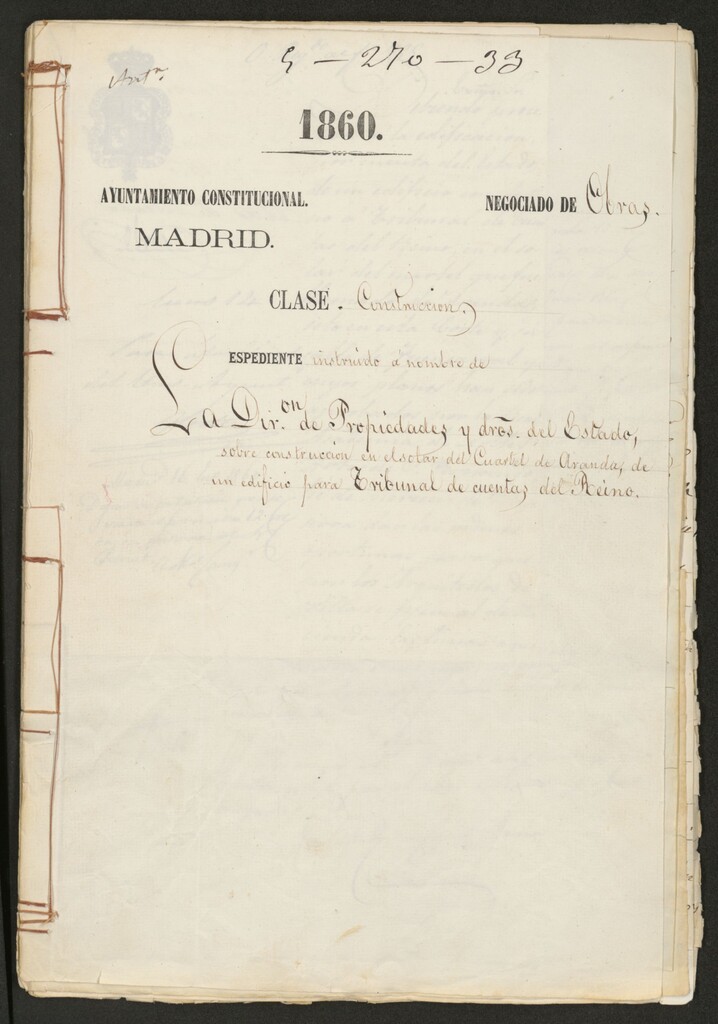 5 - 270 - 33
1860.
AYUNTAMIENTO CONSTITUCIONAL.
NEGOCIADO DE Obras.
MADRID.
CLASE. Construccion
ESPEDIENTE instruido á nombre de
La Dir.on de Propiedades y dros. del Estado,
sobre construccion en el solar del Cuartel de Aranda, de
un edificio para Tribunal de cuentas del Reino.